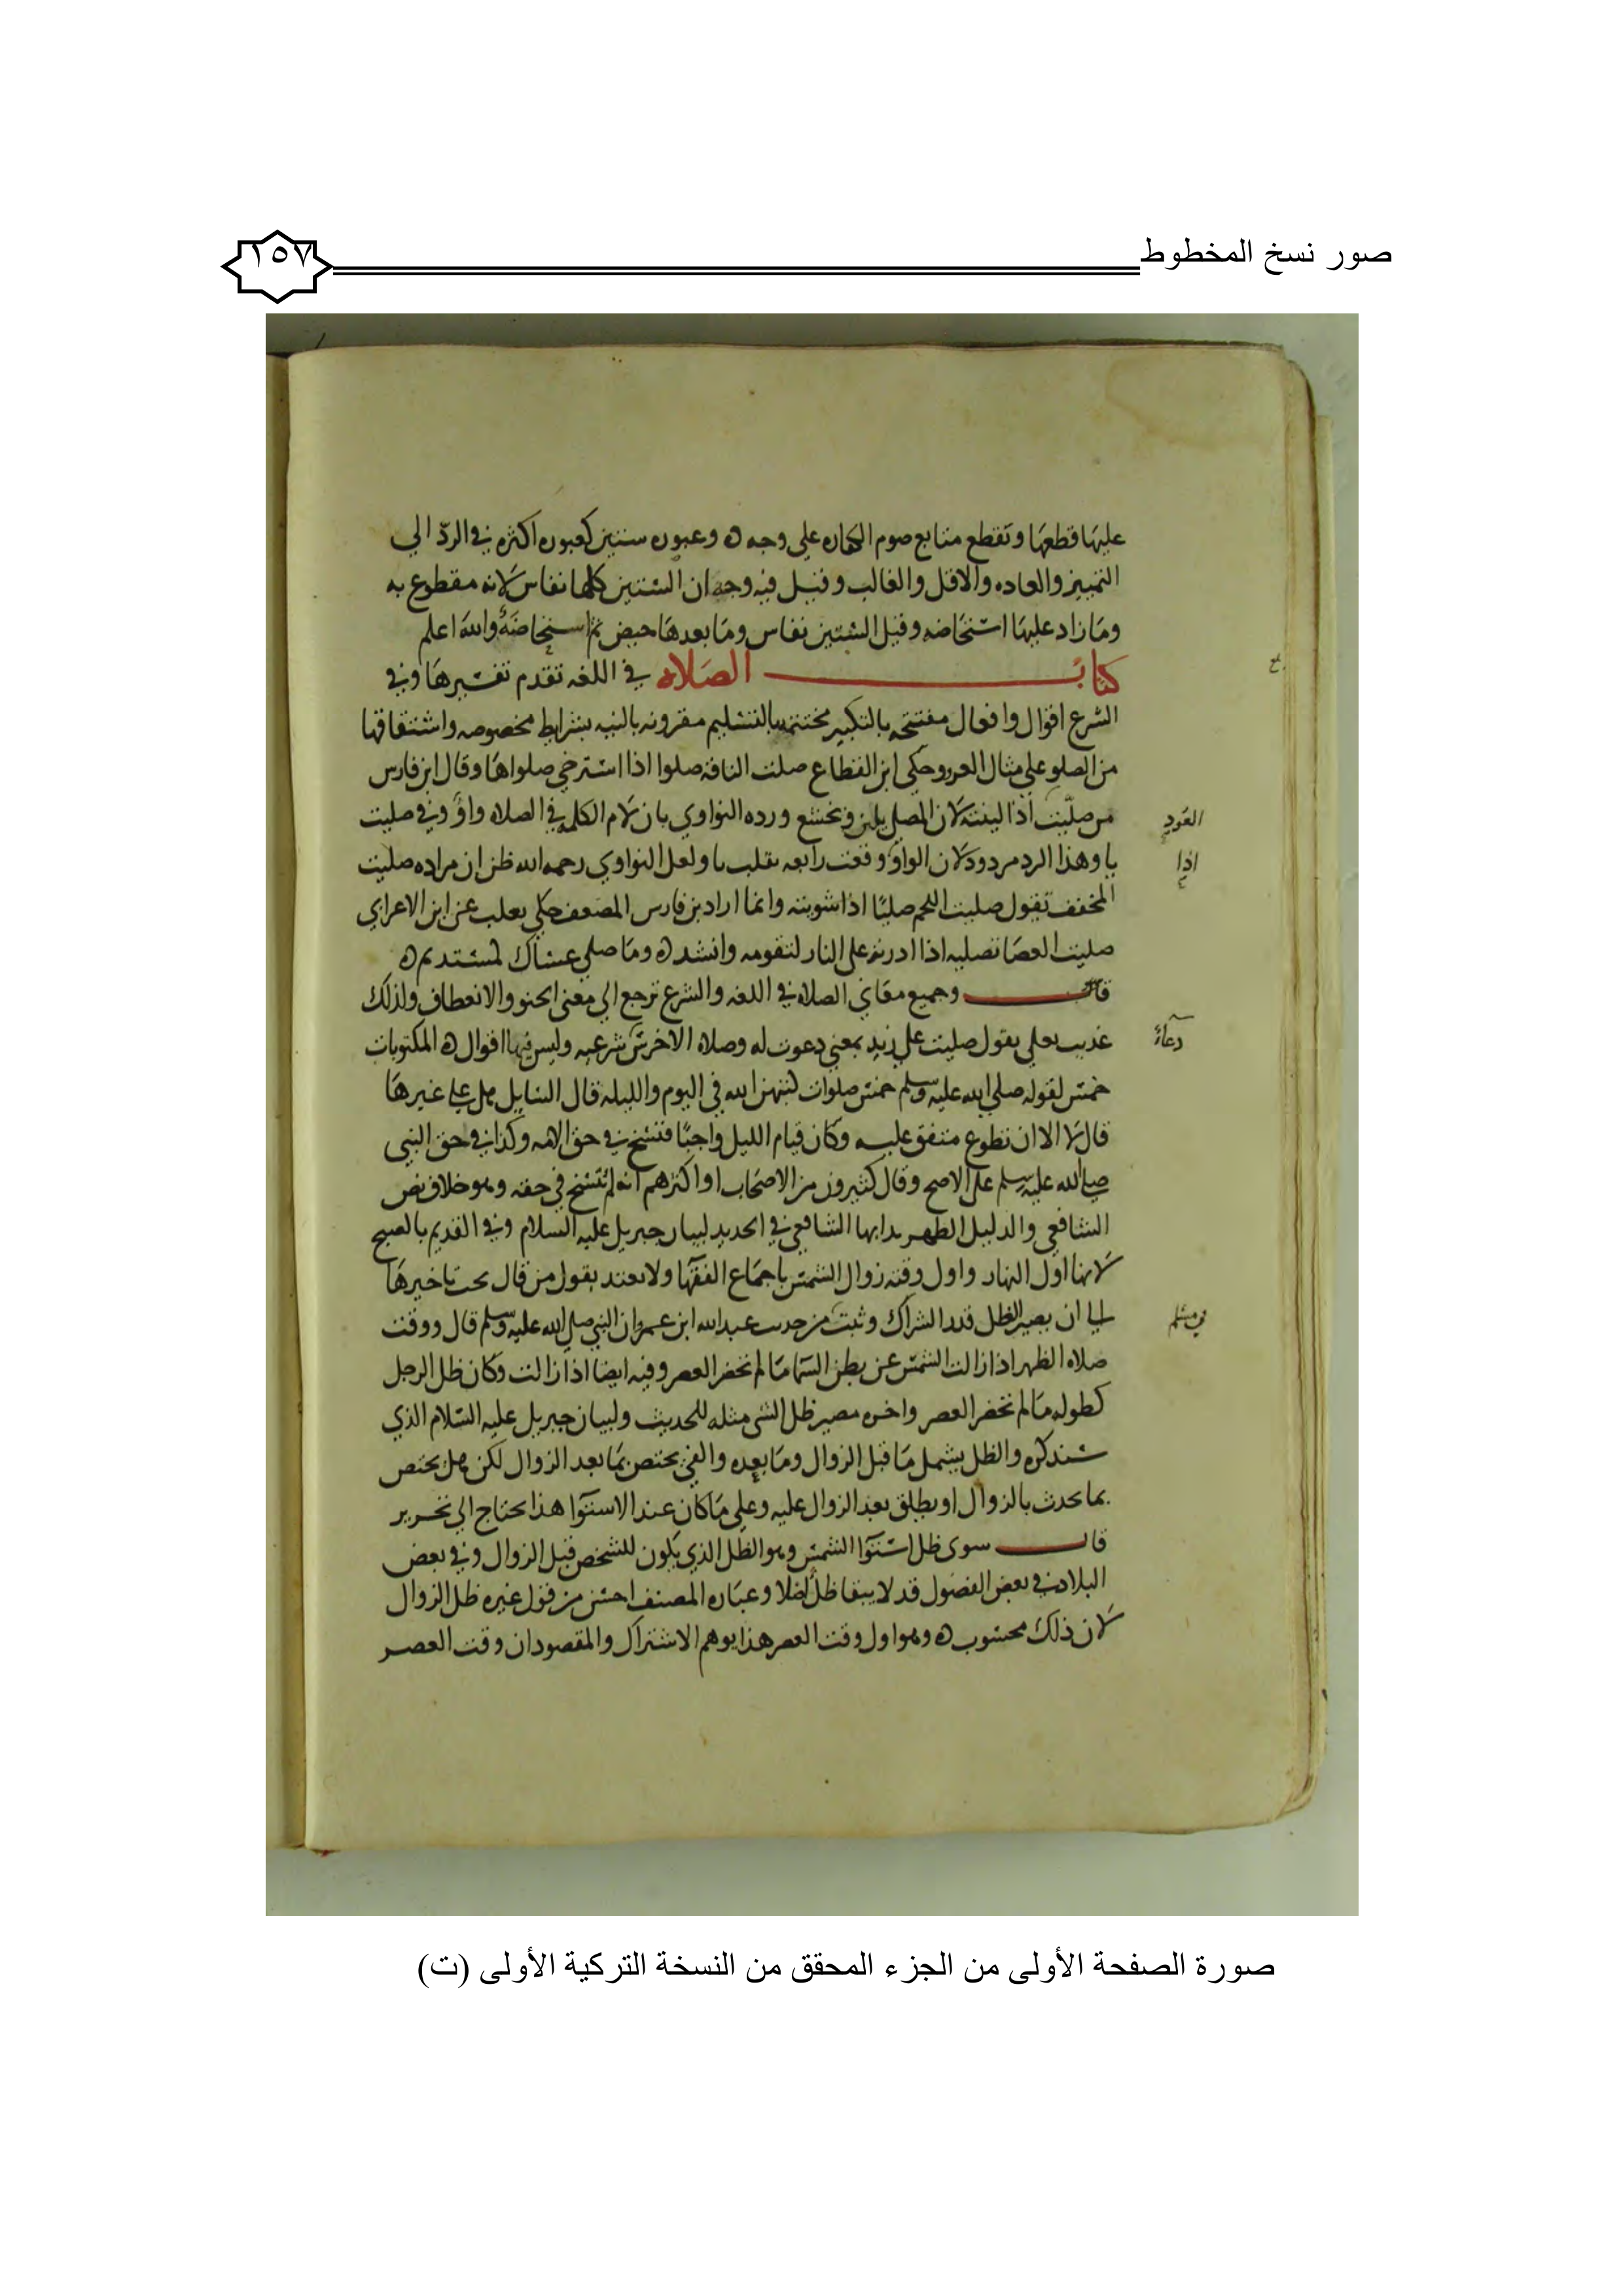 صور نسخ المخطوط
١٥٧
عليها قطعها وتقطع متابع صوم الكفاره على وجه ه وعبور ستين كعبور اكثره في الرد الي
التمييز والعاده والاقل والغالب وقيل فيه وجه ان الستين كلها نفاس لانه مقطوع به
وما زاد عليها استحاضه وقيل الستين نفاس وما بعدها حيض ثم استحاضة والله اعلم
كتاب الصلاه في اللغه تقدم تفسيرها وفي
الشرع اقوال وافعال مفتتحه بالتكبير مختتمه بالتسليم مقرونه بالنيه بشرايط مخصوصه واشتقاقها
من الصلو على مثال العرو وحكى ابن القطاع صلت الناقه صلوا اذا استرخى صلواها وقال ابن فارس
من صليت اذا لينته لان المصلي يلين ويخشع ورده النواوي بان لام الكلمه في الصلاه واو وفي صليت
العود
يا وهذا الرد مردود لان الواو وقعت رابعه تقلب يا ولعل النواوي رحمه الله ظن ان مراده صليت
اذا
المخفف تقول صليت اللحم صليا اذا شويته وانما اراد بن فارس المضعف حكى ثعلب عن ابن الاعرابي
صليت العصا تصليه اذا ادرته على النار لتقومه وانشد ه وما صلى عصاك كمستديم ه
قلت وجميع معاني الصلاه في اللغه والشرع ترجع الي معنى الحنو والانعطاف ولذلك
عديت بعلي يقول صليت على زيد بمعني دعوت له وصلاه الاخرس شرعيه وليس فيها اقوال ه المكتوبات
دعاء
خمس لقوله صلى الله عليه وسلم خمس صلوات كتبهن الله في اليوم والليله قال السايل هل علي غيرها
قال لا الا ان تطوع متفق عليه وكان قيام الليل واجبا فنسخ في حق الامه وكذا في حق النبي
صلى الله عليه وسلم على الاصح وقال كثيرون من الاصحاب او اكثرهم انه لم ينسخ في حقه وهو خلاف نص
الشافعي والدليل الظهر بدا بها الشافعي في الجديد لبيان جبريل عليه السلام وفي القديم بالصبح
لانها اول النهار واول وقته زوال الشمس باجماع الفقها ولا يعتد بقول من قال يجب تاخيرها
الي ان يصير الظل قدر الشراك وثبت من حديث عبد الله ابن عمرو ان النبي صلى الله عليه وسلم قال ووقت
في مسلم
صلاه الظهر اذا زالت الشمس عن بطن السما ما لم تحضر العصر وفيه ايضا اذا زالت وكان ظل الرجل
كطوله ما لم تحضر العصر واخره مصير ظل الشي مثله للحديث ولبيان جبريل عليه السلام الذي
سنذكره والظل يشمل ما قبل الزوال وما بعده والفي يختص بما بعد الزوال لكن هل يختص
بما يحدث بالزوال او يطلق بعد الزوال عليه وعلى ما كان عند الاستوا هذا يحتاج الي تحرير
قال سوى ظل استوا الشمس وهو الظل الذي يكون للشخص قبل الزوال وفي بعض
البلاد في بعض الفصول قد لا يبقا ظل اصلا وعباره المصنف احسن من قول غيره ظل الزوال
لان ذلك محسوب ه وهو اول وقت العصر هذا يوهم الاشتراك والمقصود ان وقت العصر
صورة الصفحة الأولى من الجزء المحقق من النسخة التركية الأولى (ت)